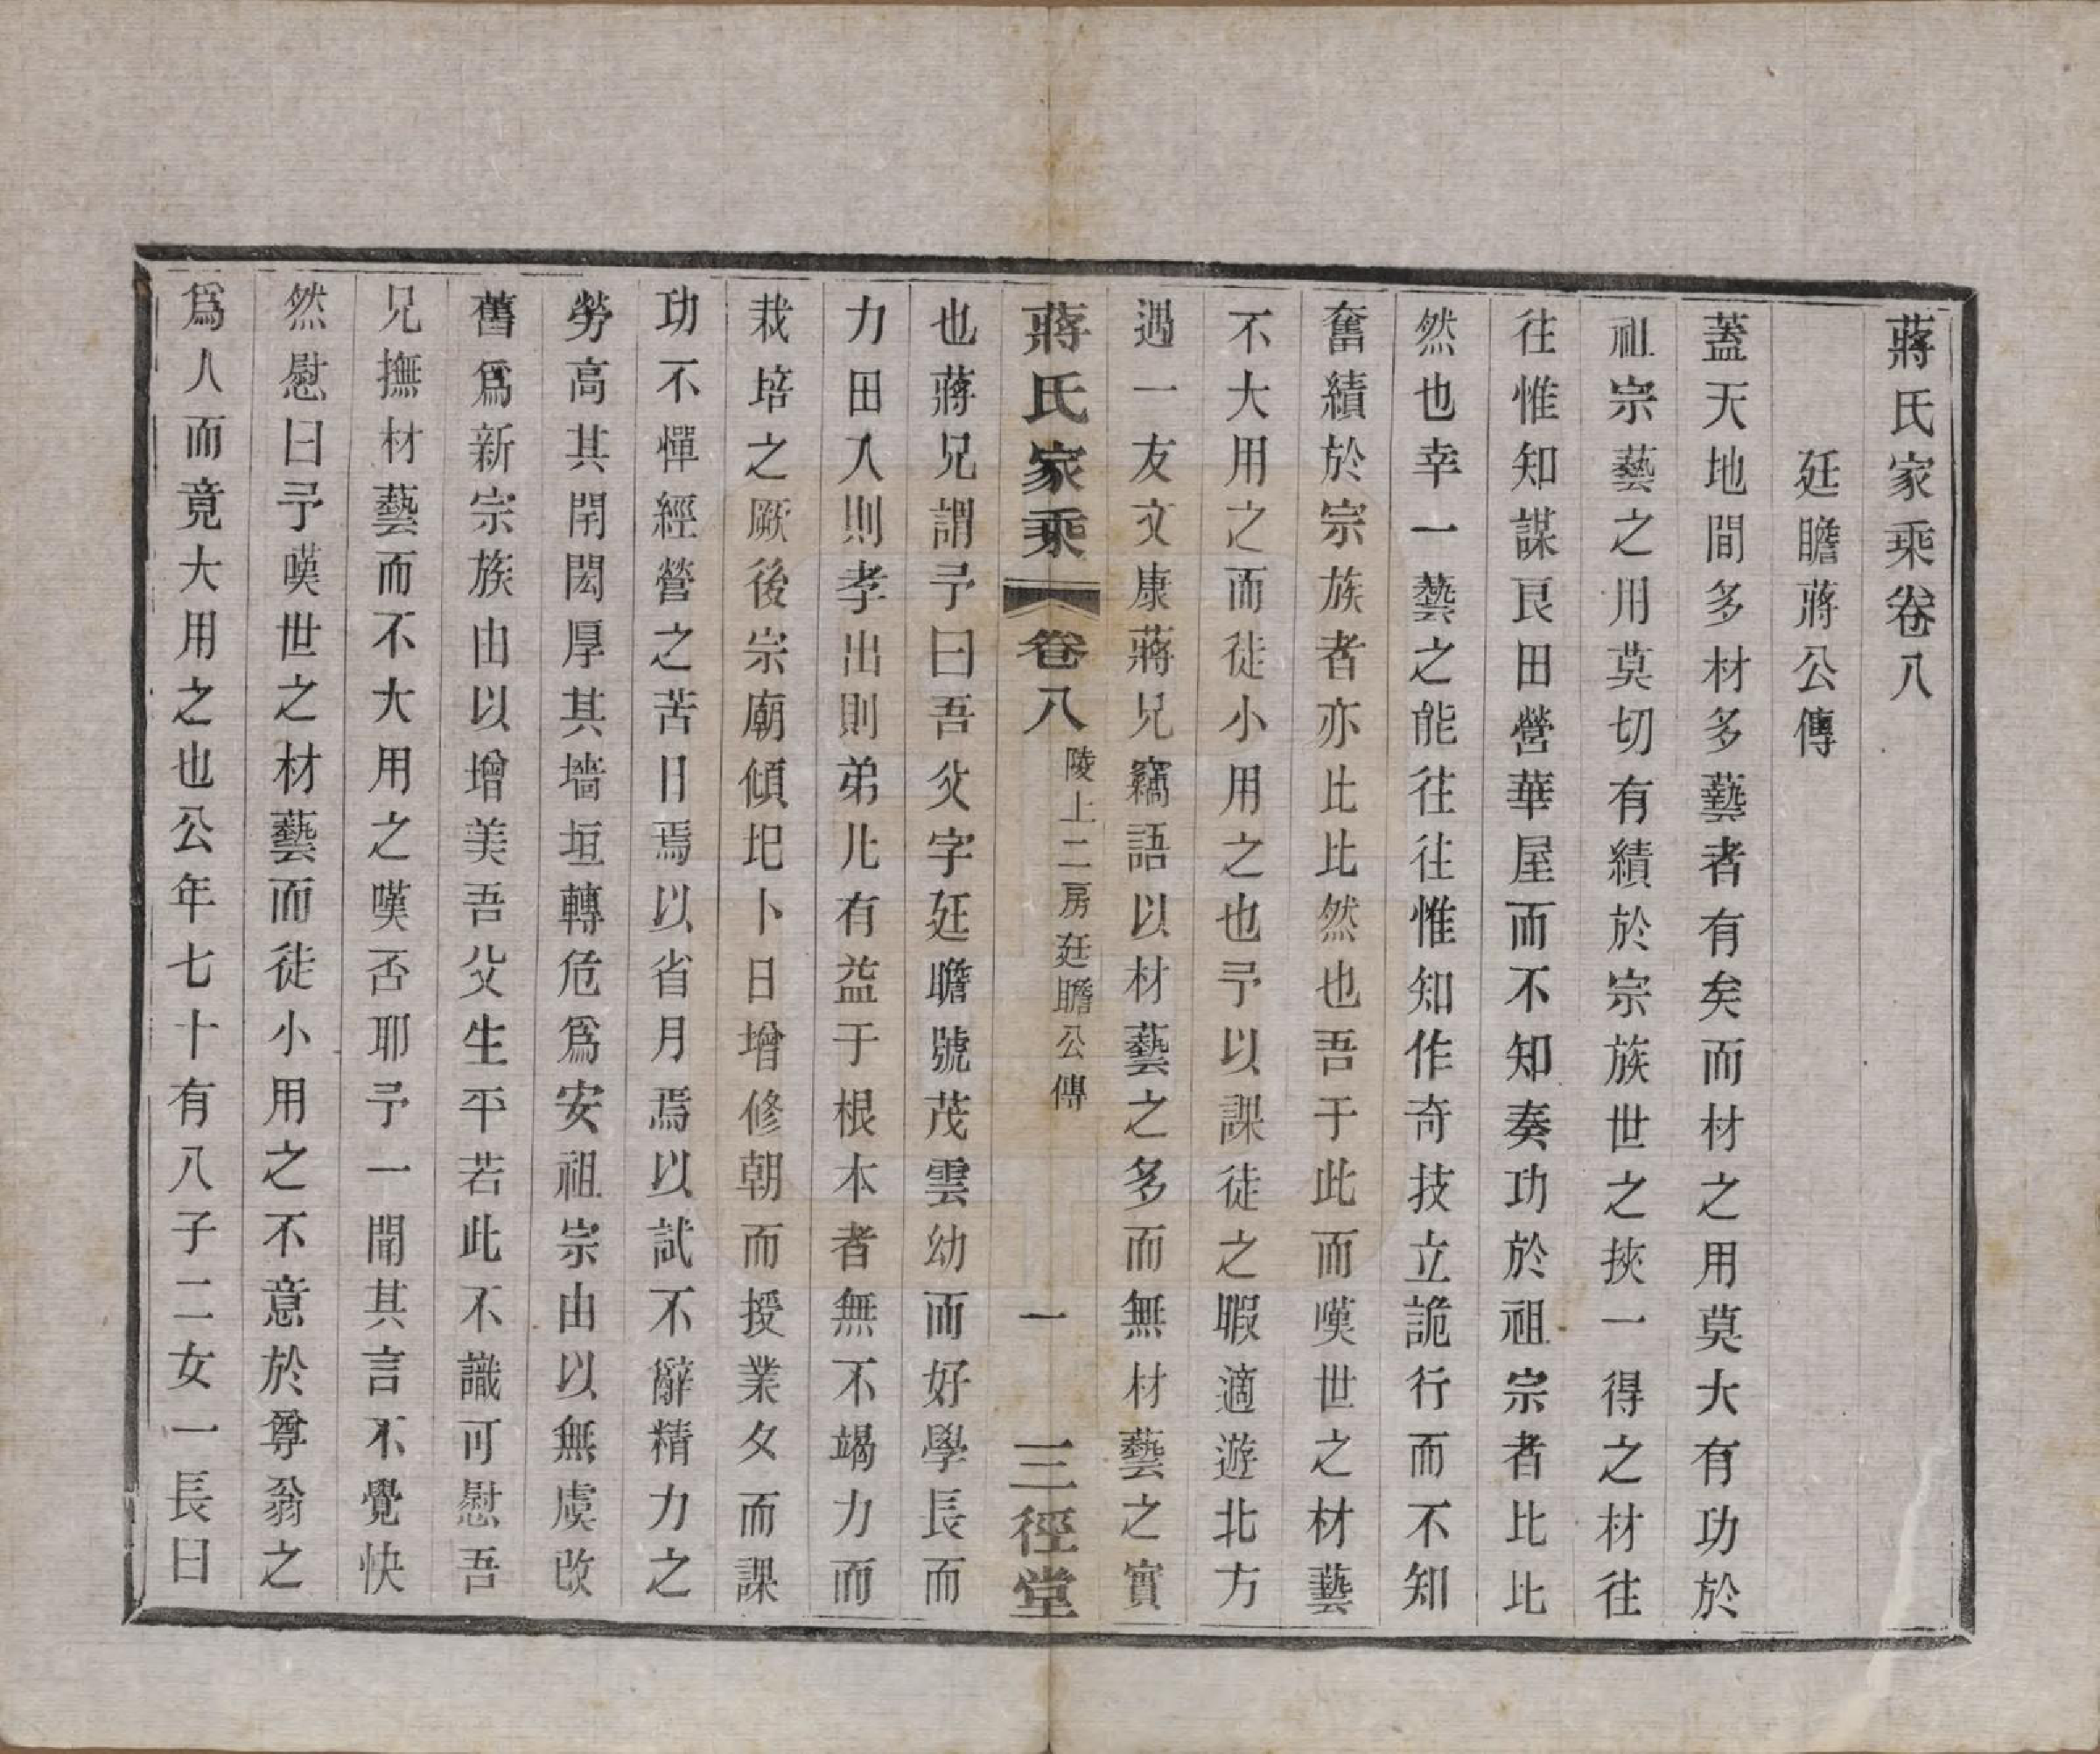 蔣氏家乘卷八
廷瞻蔣公傳
蓋天地間多材多藝者有矣而材之用莫大有功於
祖宗藝之用莫切有績於宗族世之挾一得之材往
往惟知謀良田營華屋而不知奏功於祖宗者比比
然也幸一藝之能往往惟知作奇技立詭行而不知
奮績於宗族者亦比比然也吾于此而嘆世之材藝
不大用之而徒小用之也予以課徒之暇適遊北方
遇一友文康蔣兄竊語以材藝之多而無材藝之實
蔣氏家乘
卷八
陵上二房廷瞻公傳
一
三徑堂
也蔣兄謂予曰吾父字廷瞻號茂雲幼而好學長而
力田入則孝出則弟凡有益于根本者無不竭力而
栽培之厥後宗廟傾圯卜日增修朝而授業夕而課
功不憚經營之苦日焉以省月焉以試不辭精力之
勞高其閈閎厚其墻垣轉危爲安祖宗由以無虔改
舊爲新宗族由以增美吾父生平若此不識可慰吾
兄撫材藝而不大用之嘆否耶予一聞其言不覺快
然慰曰予嘆世之材藝而徒小用之不意於尊翁之
爲人而竟大用之也公年七十有八子二女一長曰